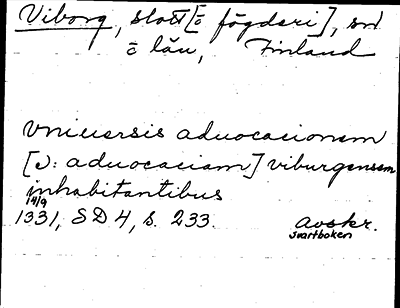 Viborg, slott [č fögderi], sn
č län, Finland
vniuersis aduocacionem
[ɔ: aduocaciam] viburgensem
inhabitantibus
14/9
1331, SD 4, s. 233. avskr.
svartboken